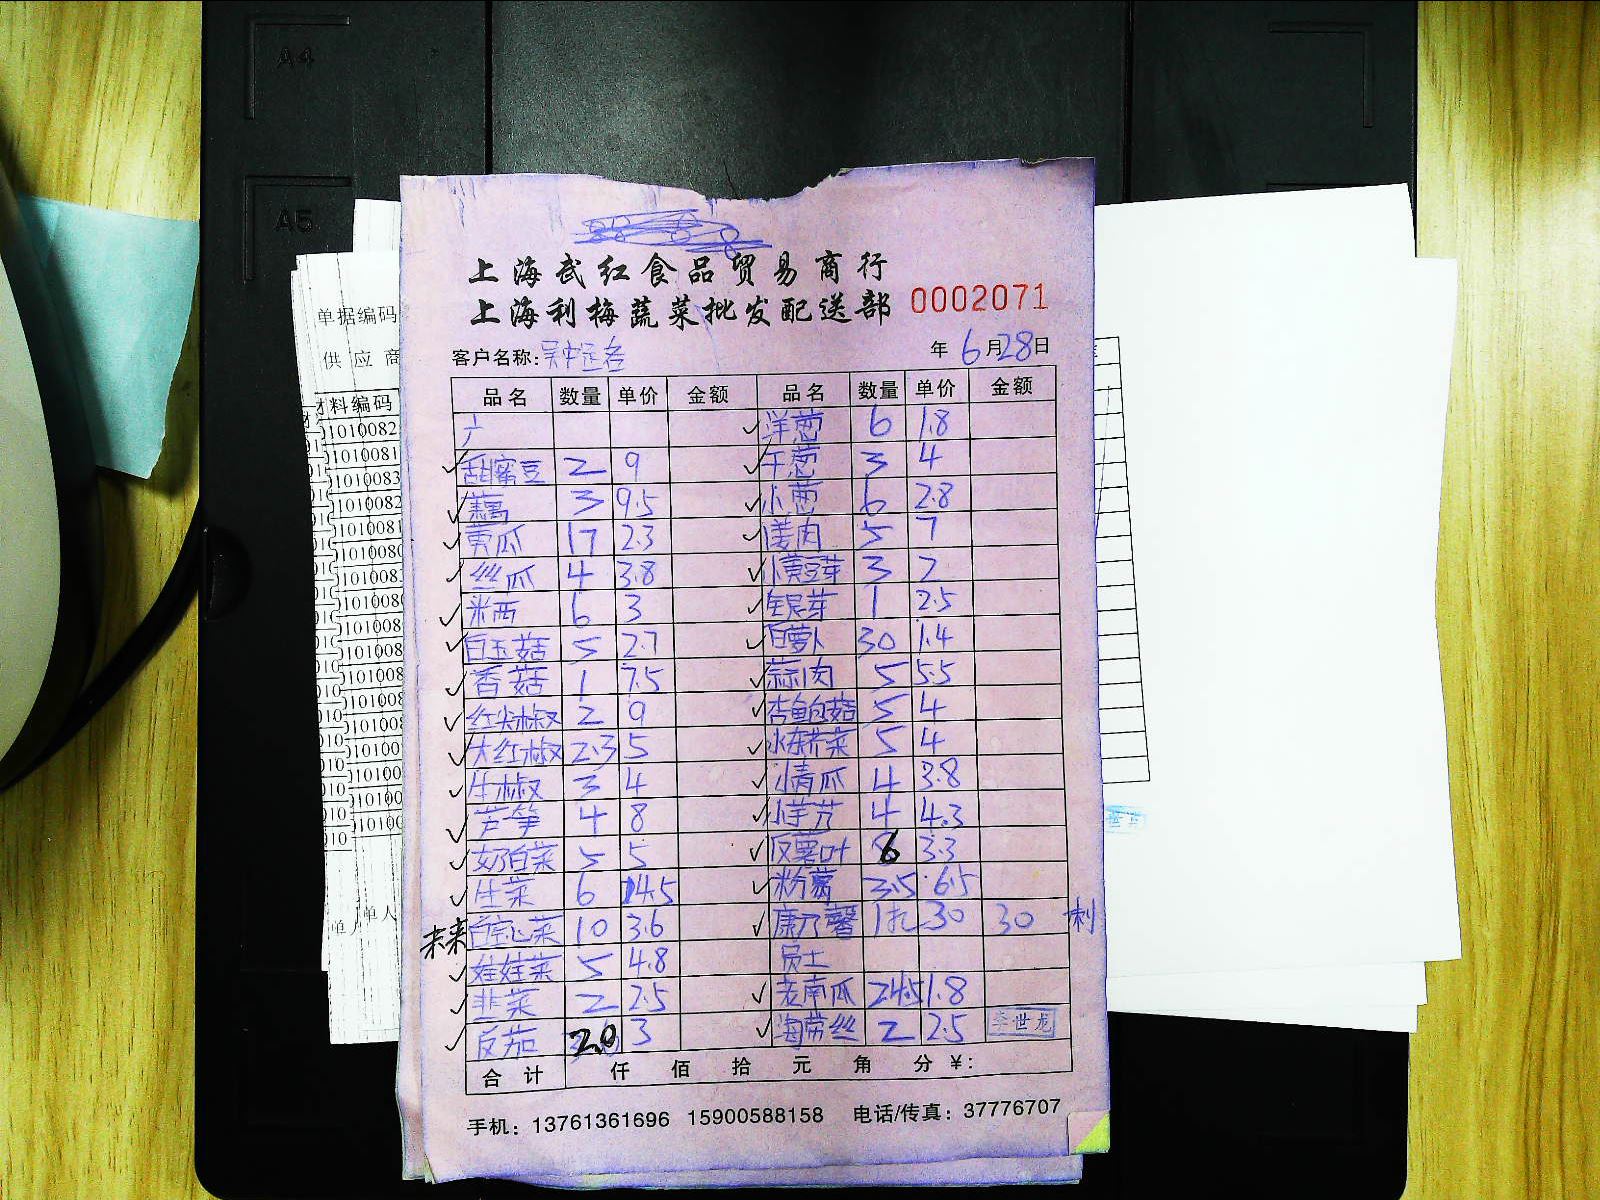 A4
A5
上海武红食品贸易商行
上海利梅蔬菜批发配送部 0002071
客户名称: 年 6月28日
品名 数量 单价 金额 品名 数量 单价 金额
洋葱 6 1.8
甜蜜豆 2 9 干葱 3 4
藕 3 9.5 小葱 6 2.8
黄瓜 17 2.3 姜肉 5 7
丝瓜 4 3.8 小黄豆芽 3 2
米西 6 3 银芽 1 2.5
白玉菇 5 2.7 白萝卜 30 1.4
香菇 1 7.5 蒜肉 5 5.5
红尖椒 2 9 杏鲍菇 5 4
大红椒 2.3 5 水东芥菜 5 4
牛椒 3 4 小青瓜 4 3.8
芦笋 4 8 小芋艿 4 4.3
奶白菜 5 5 反薯叶 6 3.3
生菜 6 4.5 粉葛 3.5 6.5
未来 白空心菜 10 3.6 康乃馨 1扎 30 30
娃娃菜 5 4.8
韭菜 2 2.5 老南瓜 24.5 1.8
反茄 20 3 海带丝 2 2.5 李世龙
合计 仟 佰 拾 元 角 分 ¥:
手机: 13761361696 15900588158 电话/传真: 37776707
单据编码
供应商
材料编码
1010082
1010081
1010083
1010082
1010081
1010080
1010083
1010080
101008
101008
101008
101008
101008
101007
10100
10100
10100
单人